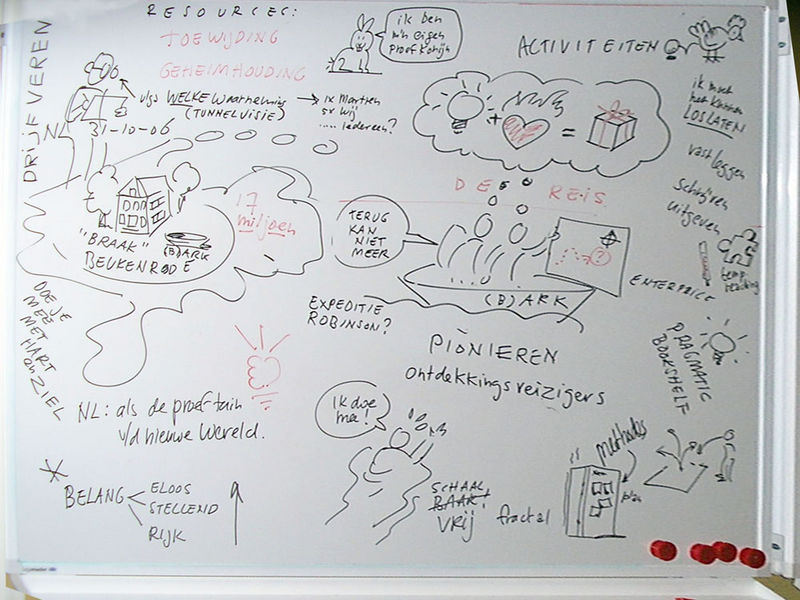 RESOURCES:
TOEWIJDING
GEHEIMHOUDING
DRIJFVEREN
WELKE Waarneming
(TUNNELVISIE)
1x Martien
5x wij
..... iedereen?
31-10-06
ik ben
m'n eigen
proefkonijn
ACTIVITEITEN
+
=
ik moet
het kunnen
LOSLATEN
vastleggen
schrijven
uitgeven
DE REIS
17
miljoen
"BRAAK"
(B)ARK
BEUKENRODE
TERUG
KAN
NIET
MEER
?
(B)ARK
ENTERPRICE
EXPEDITIE
ROBINSON?
PIONIEREN
ontdekkingsreizigers
PRAGMATIC
BOOKSHELF
DOE JE
MEE
MET
HART
en ZIEL
NL: als de proeftuin
v/d nieuwe wereld.
Ik doe
mee!
BELANG
ELOOS
STELLEND
RIJK
SCHAAL
BAAR
VRIJ
fractal
methodes